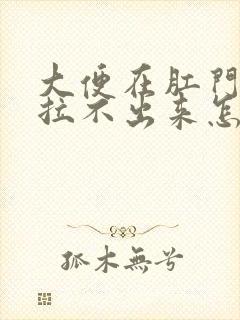 大便在肛門
拉不出来怎
孤木無兮